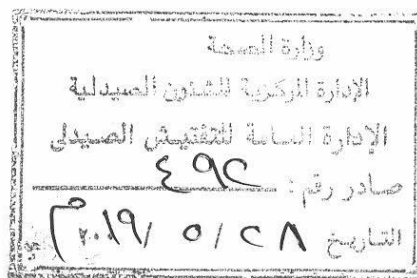 وزارة الصحة
الإدارة المركزية للشئون الصيدلية
الإدارة العامة للتفتيش الصيدلى
صادر رقم : ٤٩٢
التاريخ ٢٨ / ٥ / ٢٠١٩ م